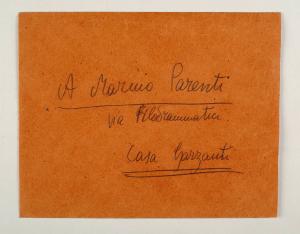 A Marino Parenti
via Filodrammatici
Casa Garzanti